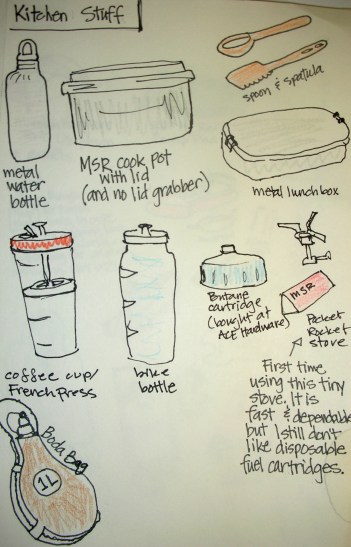 Kitchen Stuff
metal
water
bottle
MSR cook pot
with lid
(and no lid grabber)
spoon & spatula
metal lunchbox
coffee cup/
French Press
bike
bottle
Butane
cartridge
(bought at
ACE Hardware)
MSR
Pocket
Rocket
stove
First time
using this tiny
stove. It is
fast & dependable
but I still don't
like disposable
fuel cartridges.
Boda Bag
1L